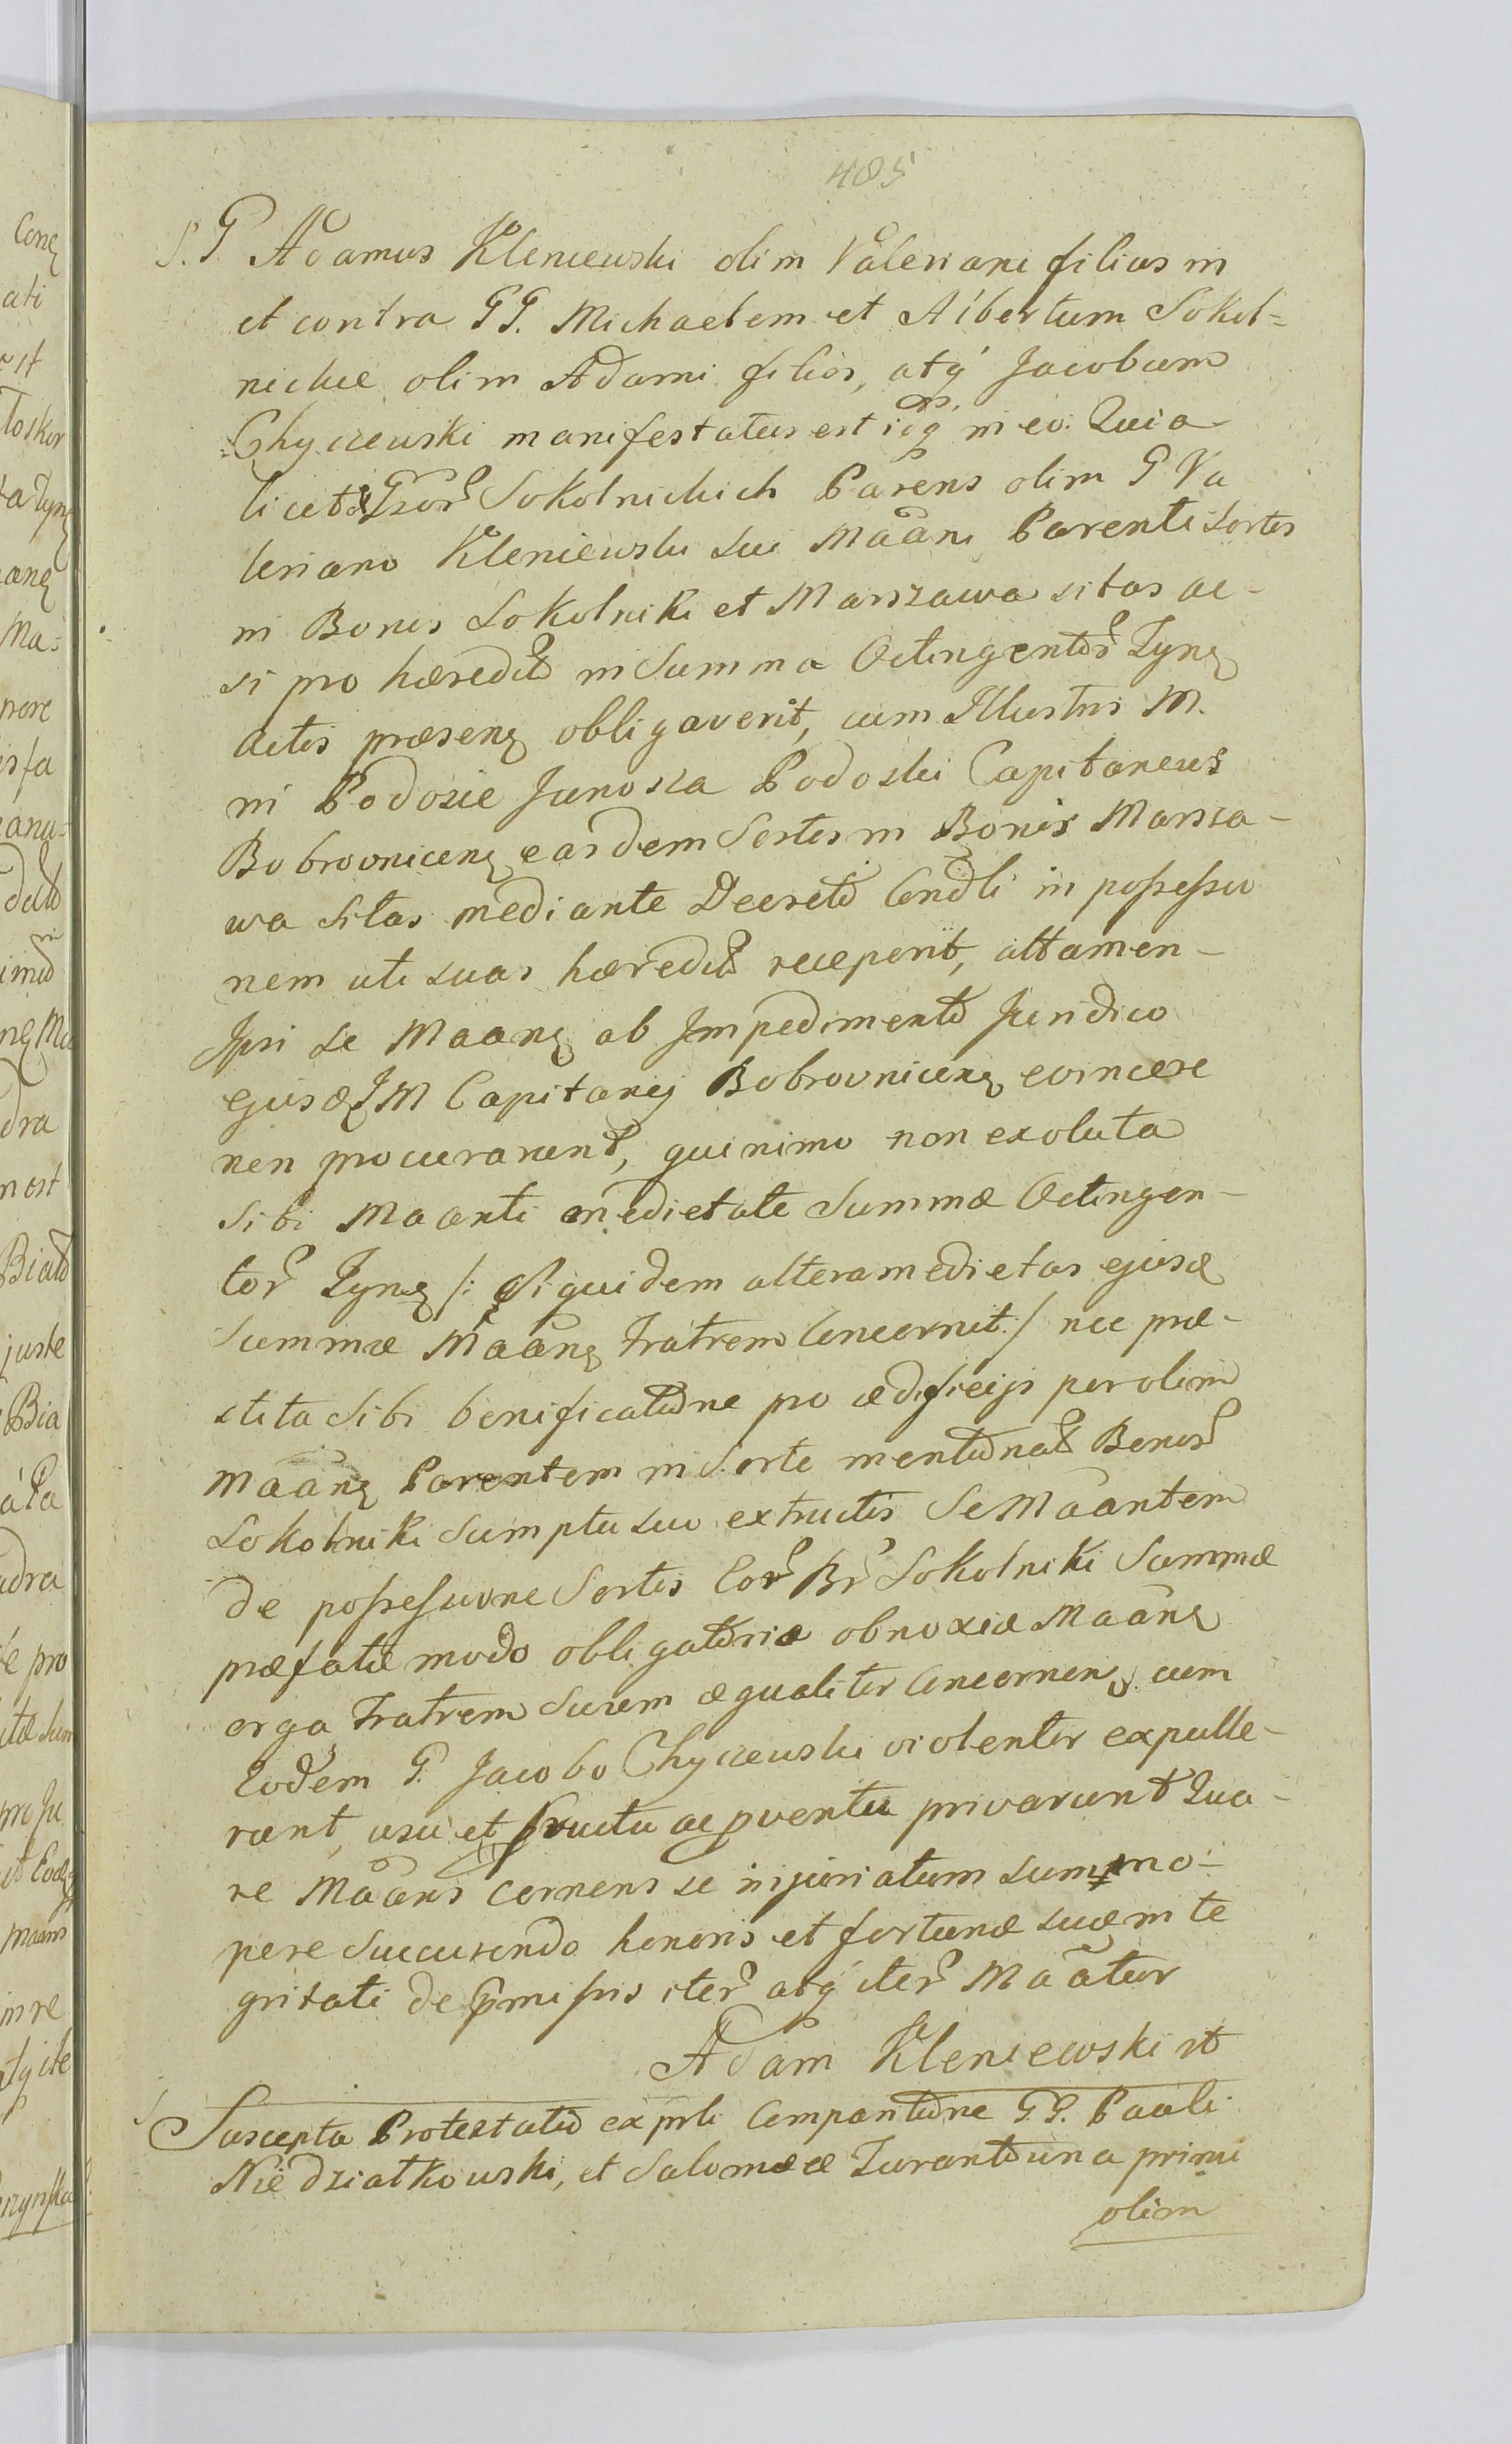 405
S. G. Adamus Kleniewski olim Valeriani filius in
et contra GG. Michaelem et Albertum Sokol=
nickie olim Adami filios, atq́ Jacobum
Chyczewski manifestatus est idq́ in eo. Quia
licet Gsor Sokolnickich Parens olim G Va
leriano Kleniewski sui Maãn Parenti Sortes
in Bonis Sokolniki et Marszawa sitas ac-
si pro hæredit in Summa Octingentor Tynę
Actis præsenę obligaverit, cum Illustris M.
in Podosie Junosza Podoski Capitaneus
Bobrovnicenę easdem Sortes in Bonis Marsza-
wa sitas mediante Decreto Condli in possessio
nem uti suas hæredit receperit, attamen-
Ipsi se Maanę ab Impedimento Juridico
ejusd IM Capitanej Bobrovnicenę evincere
non procurarunt, quinimo non exoluta
sibi Maanti medietate Summæ Octingen-
tor Tynę /: siquidem altera medietas ejusd
Summæ Maãnę Fratrem Concernit:/ nec præ-
stita sibi bonificatione pro ædificijs per olim
Maãnę Parentem in Sorte mentionat Bonor
Sokolniki Sumptu suo extructis Se Maãntem
de possessione Sortis Eor Br Sokolniki Summæ
præfatæ modo obligatorio obnoxiæ Maãnę
erga Fratrem Suum æqualiter Concernenę cum
Eodem G. Jacobo Chyczewski violenter expulle-
rant, usu et fructu ac pventu privarunt Qua-
re Maãns cernens se injuriatum summo-
pere Succurendo honoris et fortunæ suæ inte
gritati de pmissis iter atq́ iter Maãtur
Adam Kleniewski
Suscepta Protestatio ex prli Comparitione GG. Pauli
Niedziałkowski, et Salomeæ Zurantouna primi
olim